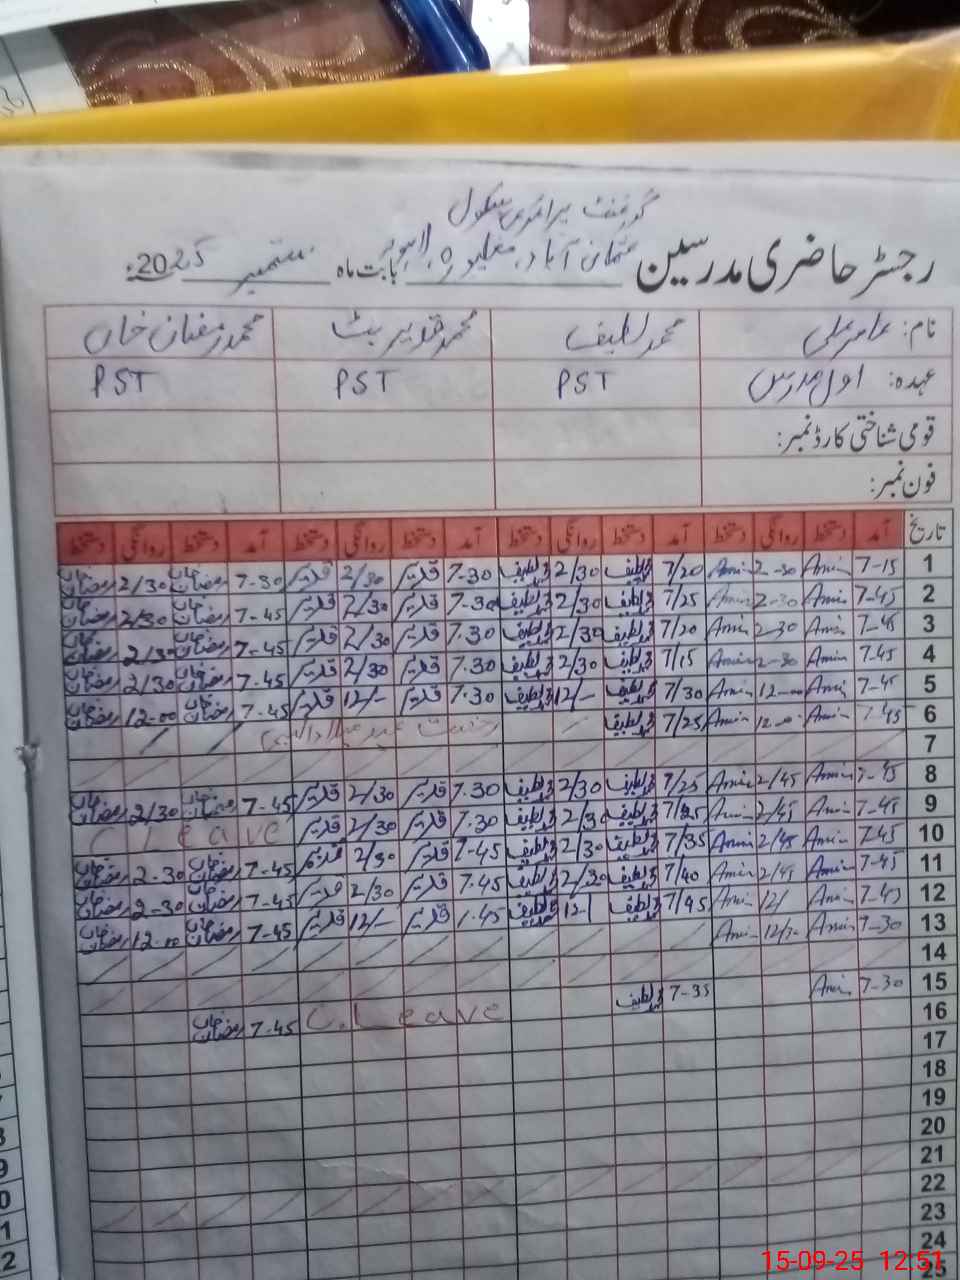 گورنمنٹ پرائمری سکول
رجسٹر حاضری مدرسین عثمان آباد، مغلپورہ، لاہور بابت ماہ ستمبر 2025ء
نام: عامر علی محمد لطیف محمد قدیر بٹ محمد رمضان خان
عہدہ: اول مدرس PST PST PST
قومی شناختی کارڈ نمبر:
فون نمبر:
تاریخ آمد دستخط روانگی دستخط آمد دستخط روانگی دستخط آمد دستخط روانگی دستخط آمد دستخط روانگی دستخط
1 7-15 Amir 2-30 Amir 7/20 محمد لطیف 2/30 محمد لطیف 7-30 قدیر 2/30 قدیر 7-30 رمضان خان 2/30 رمضان خان
2 7-45 Amir 2-30 Amir 7/25 محمد لطیف 2/30 محمد لطیف 7-30 قدیر 2/30 قدیر 7-45 رمضان خان 2/30 رمضان خان
3 7-45 Amir 2-30 Amir 7/20 محمد لطیف 2/30 محمد لطیف 7.30 قدیر 2/30 قدیر 7-45 رمضان خان 2/30 رمضان خان
4 7-45 Amir 2-30 Amir 7/15 محمد لطیف 2/30 محمد لطیف 7.30 قدیر 2/30 قدیر 7-45 رمضان خان 2/30 رمضان خان
5 7-45 Amir 12-00 Amir 7/30 محمد لطیف 12/- محمد لطیف 7.30 قدیر 12/- قدیر 7-45 رمضان خان 12-00 رمضان خان
6 7-45 Amir 12-00 Amir 7/25 محمد لطیف
7
8 7-45 Amir 2/45 Amir 7/25 محمد لطیف 2/30 محمد لطیف 7.30 قدیر 2/30 قدیر 7-45 رمضان خان 2/30 رمضان خان
9 7-45 Amir 2/45 Amir 7/25 محمد لطیف 2/30 محمد لطیف 7.30 قدیر 2/30 قدیر C Leave
10 7-45 Amir 2/45 Amir 7/35 محمد لطیف 2/30 محمد لطیف 7-45 قدیر 2/30 قدیر 7-45 رمضان خان 2-30 رمضان خان
11 7-45 Amir 2/45 Amir 7/40 محمد لطیف 2/30 محمد لطیف 7.45 قدیر 2/30 قدیر 7-45 رمضان خان 2-30 رمضان خان
12 7-45 Amir 12/ Amir 7/45 محمد لطیف 12-/ محمد لطیف 7.45 قدیر 12/- قدیر 7-45 رمضان خان 12-00 رمضان خان
13 7-30 Amir Amir
14
15 7-30 Amir 7-35 محمد لطیف C.Leave 7-45 رمضان خان
16
17
18
19
20
21
22
23
24
25
15-09-25 12:51